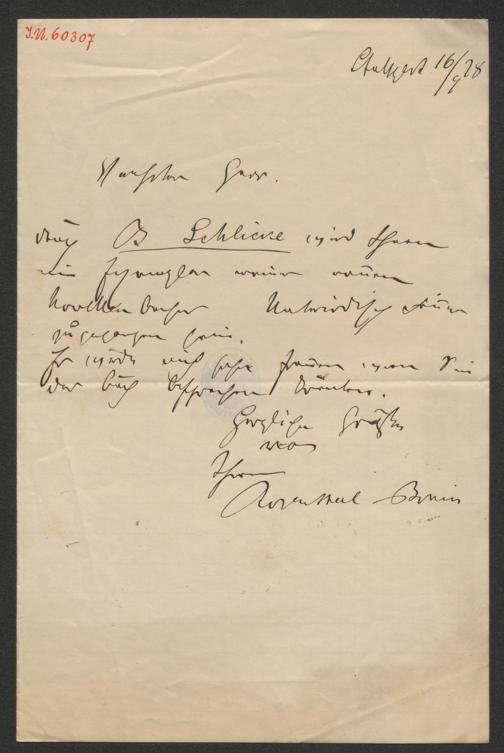 I.N. 60307
Stuttgart 16/9 78
Verehrter Herr.
durch B Schlicke wird Ihnen
ein Exemplar meiner neuen
Novellenbuches Unterirdisch Feuer
zugegangen sein.
Es würde mich sehr freuen wenn Sie
das Buch besprechen könnten.
Herzliche Grüße
von
Ihrem
Rosenthal-Bonin